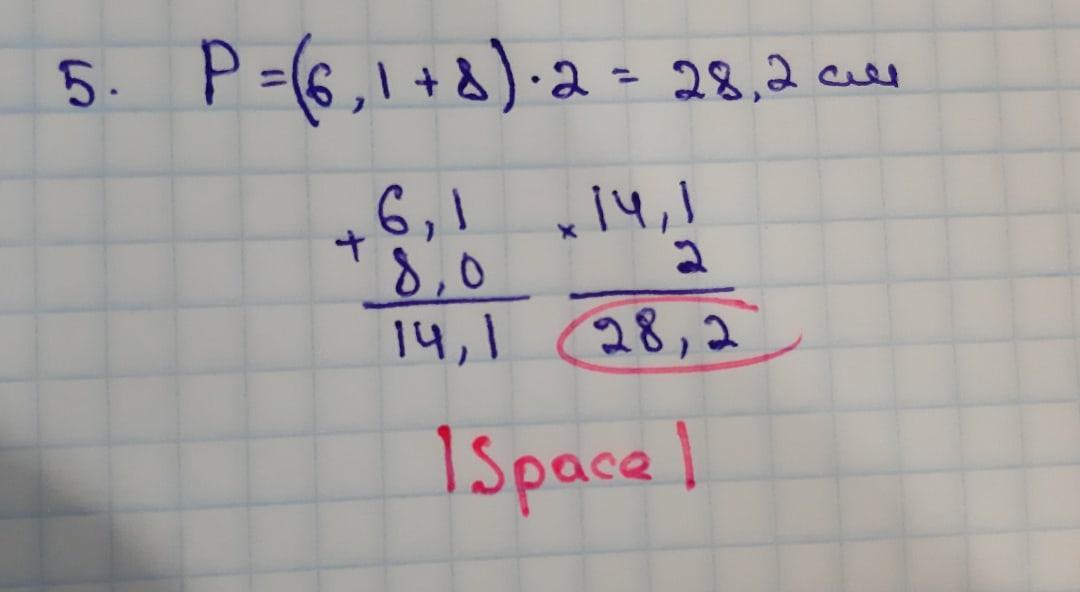 5. P = (6,1 + 8) · 2 = 28,2 см
+ 6,1 × 14,1
8,0 2
14,1 28,2
|Space|